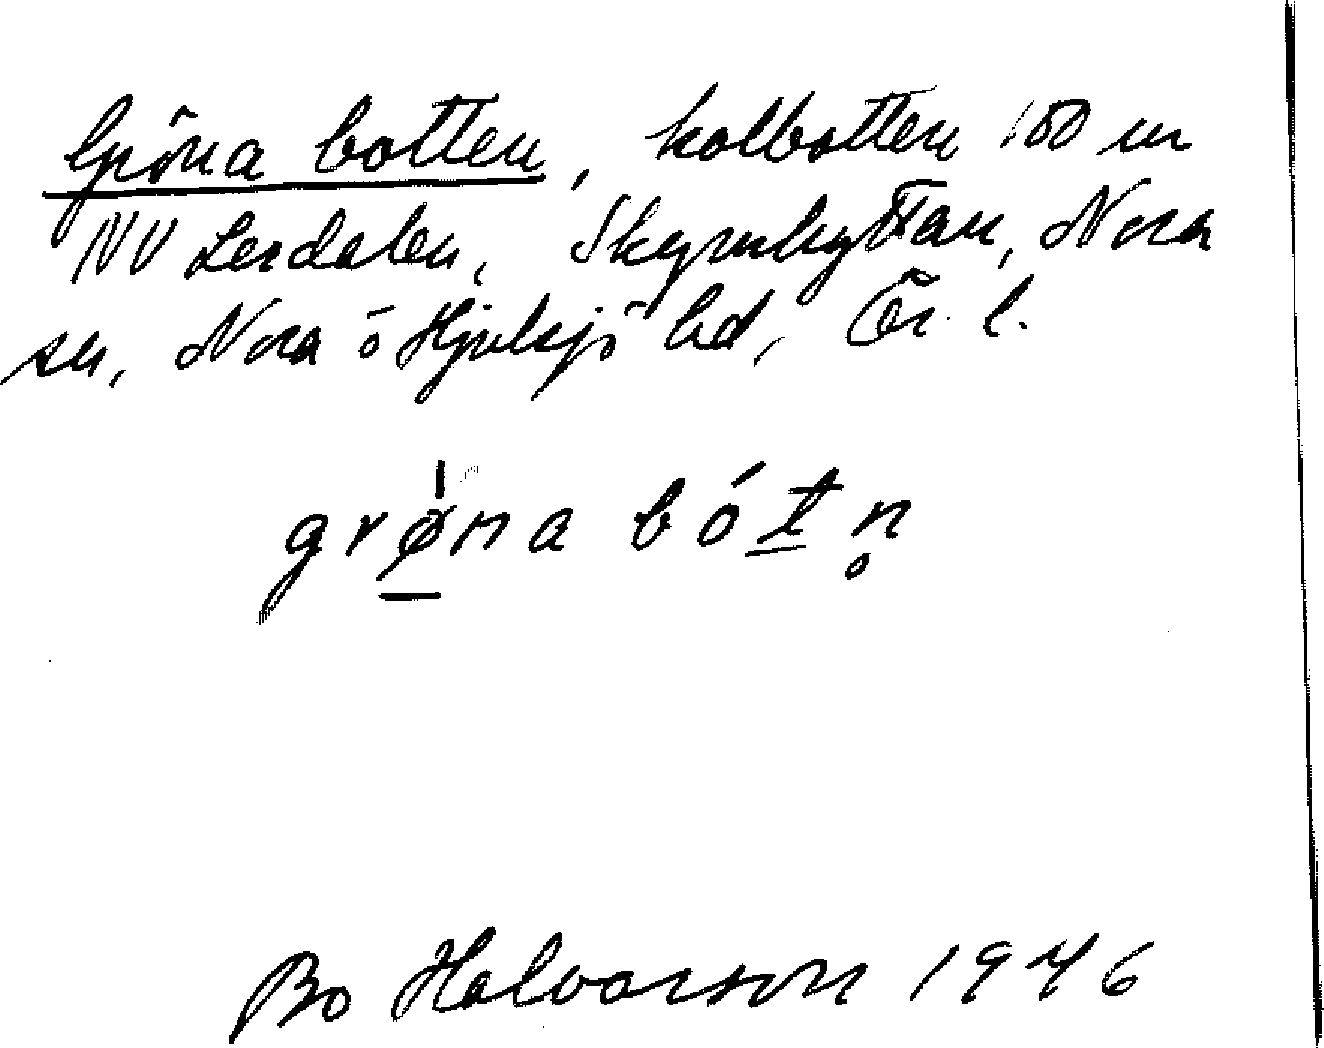 Gröna botten, kolbotten 150 m
NV Lerdalen, Skyrshyttan, Nora
sn, Nora o Hjulsjö bd, Ör. l.
grǿ̠na bót̠n̥
Bo Halvarson 1946